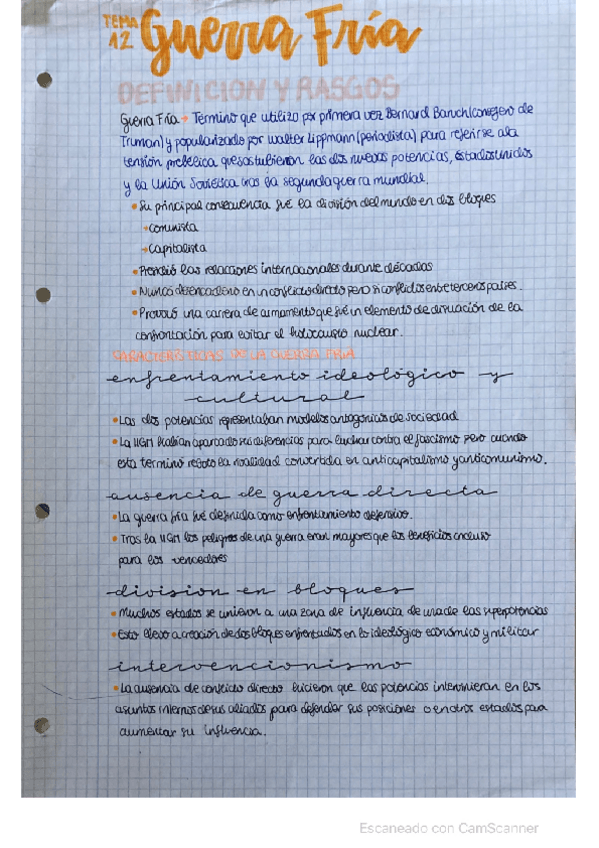 TEMA
12 Guerra Fría
DEFINICION Y RASGOS
Guerra Fría → Término que utilizo por primera vez Bernard Baruch (consejero de
Truman) y popularizado por Walter Lippmann (periodista) para referirse a la
tensión prebélica que sostubieron las dos nuevas potencias, Estados Unidos
y la Unión Soviética tras la segunda guerra mundial.
• Su principal consecuencia fue la división del mundo en dos bloques
→ comunista
→ capitalista
• Presidió las relaciones internacionales durante décadas
• Nunca desencadeno en un conflicto directo pero si conflictos entre terceros países.
• Provocó una carrera de armamento que fue un elemento de disuación de la
confrontación para evitar el holocausto nuclear.
CARACTERISTICAS DE LA GUERRA FRIA
enfrentamiento ideológico y
cultural
• Las dos potencias representaban modelos antagónicos de sociedad
• La IIGM habían apartado sus diferencias para luchar contra el fascismo pero cuando
esta termino rebroto la rivalidad convertida en anticapitalismo y anticomunismo.
ausencia de guerra directa
• La guerra fría fue definida como enfrentamiento defensivo.
• Tras la IIGM los peligros de una guerra eran mayores que los beneficios incluso
para los vencedores
division en bloques
• Muchos estados se unieron a una zona de influencia de una de las superpotencias
• Esto llevo a creación de dos bloques enfrentados en lo ideológico económico y militar
intervencionismo
• La ausencia de conflicto directo hicieron que las potencias intervinieran en los
asuntos internos de sus aliados para defender sus posiciones o en otros estados para
aumentar su influencia.
Escaneado con CamScanner